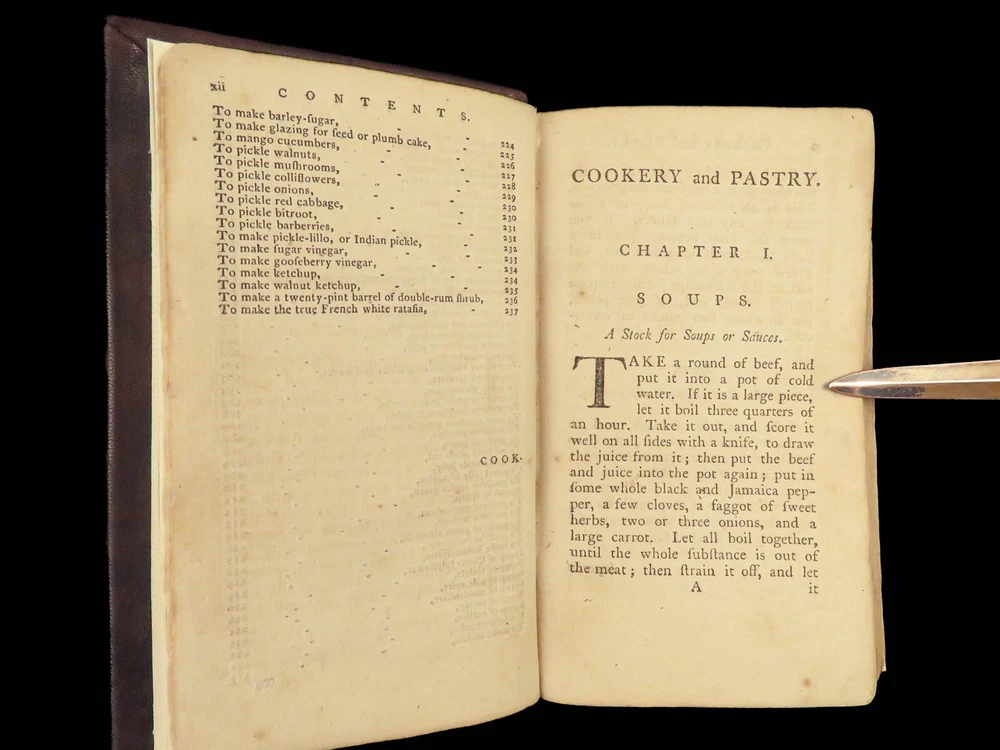 xii
CONTENTS.
To make barley-ſugar, - - 224
To make glazing for ſeed or plumb cake, - 225
To mango cucumbers, - - 226
To pickle walnuts, - - 227
To pickle muſhrooms, - - 228
To pickle colliflowers, - - 229
To pickle onions, - - 230
To pickle red cabbage, - - 230
To pickle bitroot, - - 231
To pickle barberries, - - 231
To make pickle-lillo, or Indian pickle, - 232
To make ſugar vinegar, - - 233
To make gooſeberry vinegar, - - 234
To make ketchup, - - 234
To make walnut ketchup, - - 235
To make a twenty-pint barrel of double-rum ſhrub, 236
To make the true French white rataſia, - 237
COOK-
COOKERY and PASTRY.
CHAPTER I.
SOUPS.
A Stock for Soups or Sauces.
TAKE a round of beef, and
put it into a pot of cold
water. If it is a large piece,
let it boil three quarters of
an hour. Take it out, and ſcore it
well on all ſides with a knife, to draw
the juice from it; then put the beef
and juice into the pot again; put in
ſome whole black and Jamaica pep-
per, a few cloves, a faggot of ſweet
herbs, two or three onions, and a
large carrot. Let all boil together,
until the whole ſubſtance is out of
the meat; then ſtrain it off, and let
A it